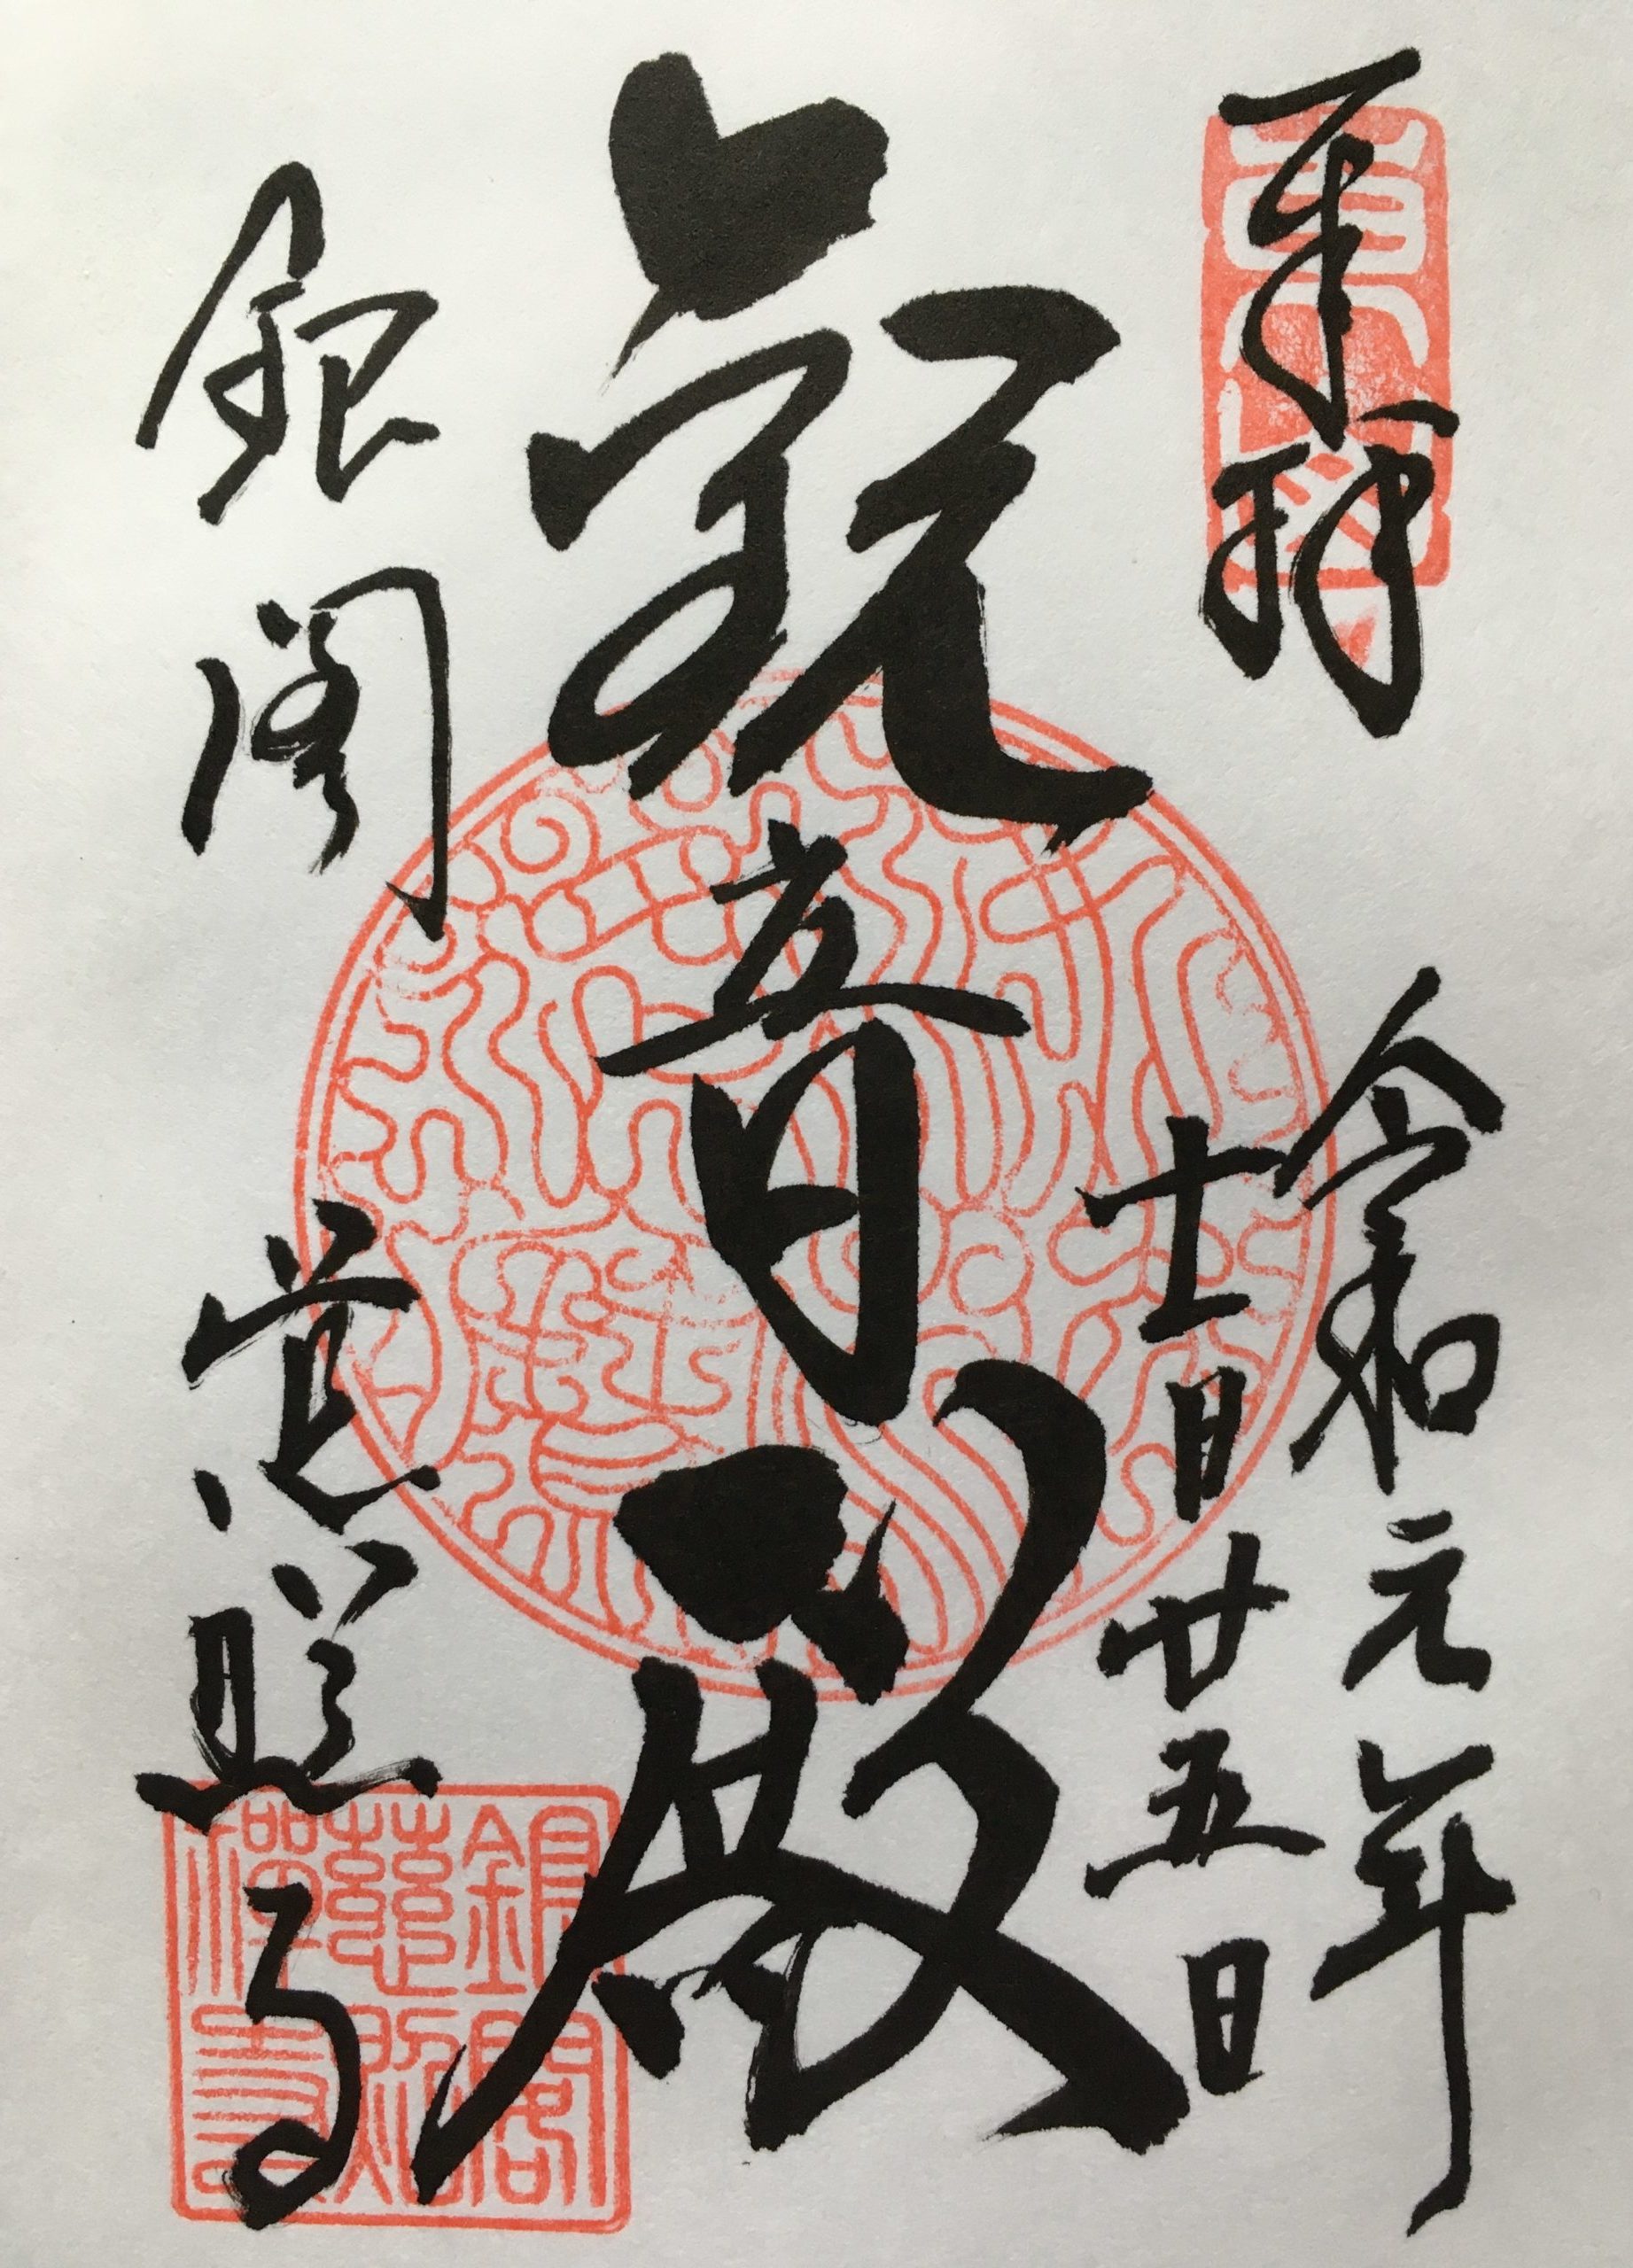 奉拝
東山
令和元年
十一月廿五日
観音殿
銀閣
慈照寺
銀閣
慈照
禪寺